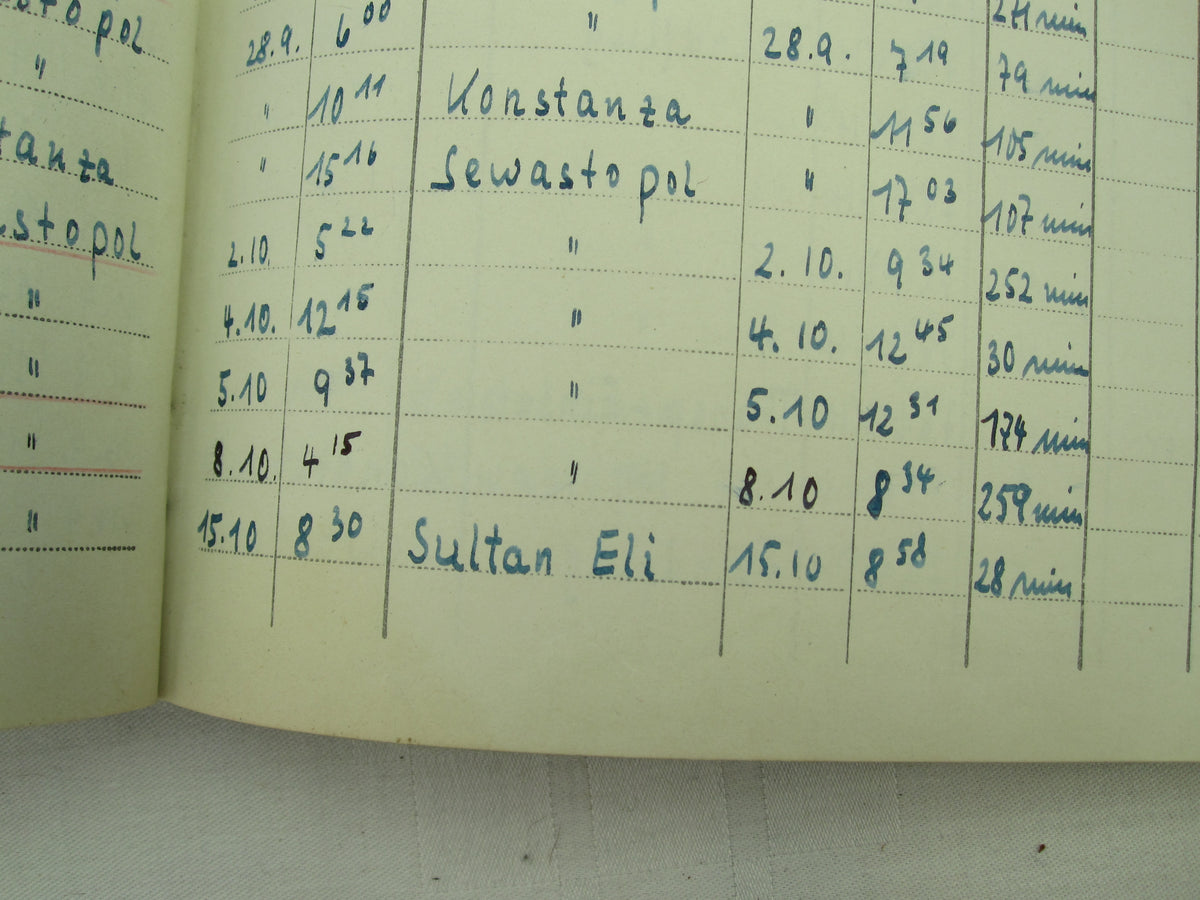 stopol 28.9. 6 00 " 28.9. 7 19 79 min
" " 10 11 Konstanza " 11 56 105 min
tanza " 15 16 Sewastopol " 17 03 107 min
stopol 2.10. 5 22 " 2.10. 9 34 252 min
" 4.10. 12 15 " 4.10. 12 45 30 min
" 5.10 9 37 " 5.10 12 31 174 min
" 8.10. 4 15 " 8.10 8 34 259 min
" 15.10 8 30 Sultan Eli 15.10 8 58 28 min